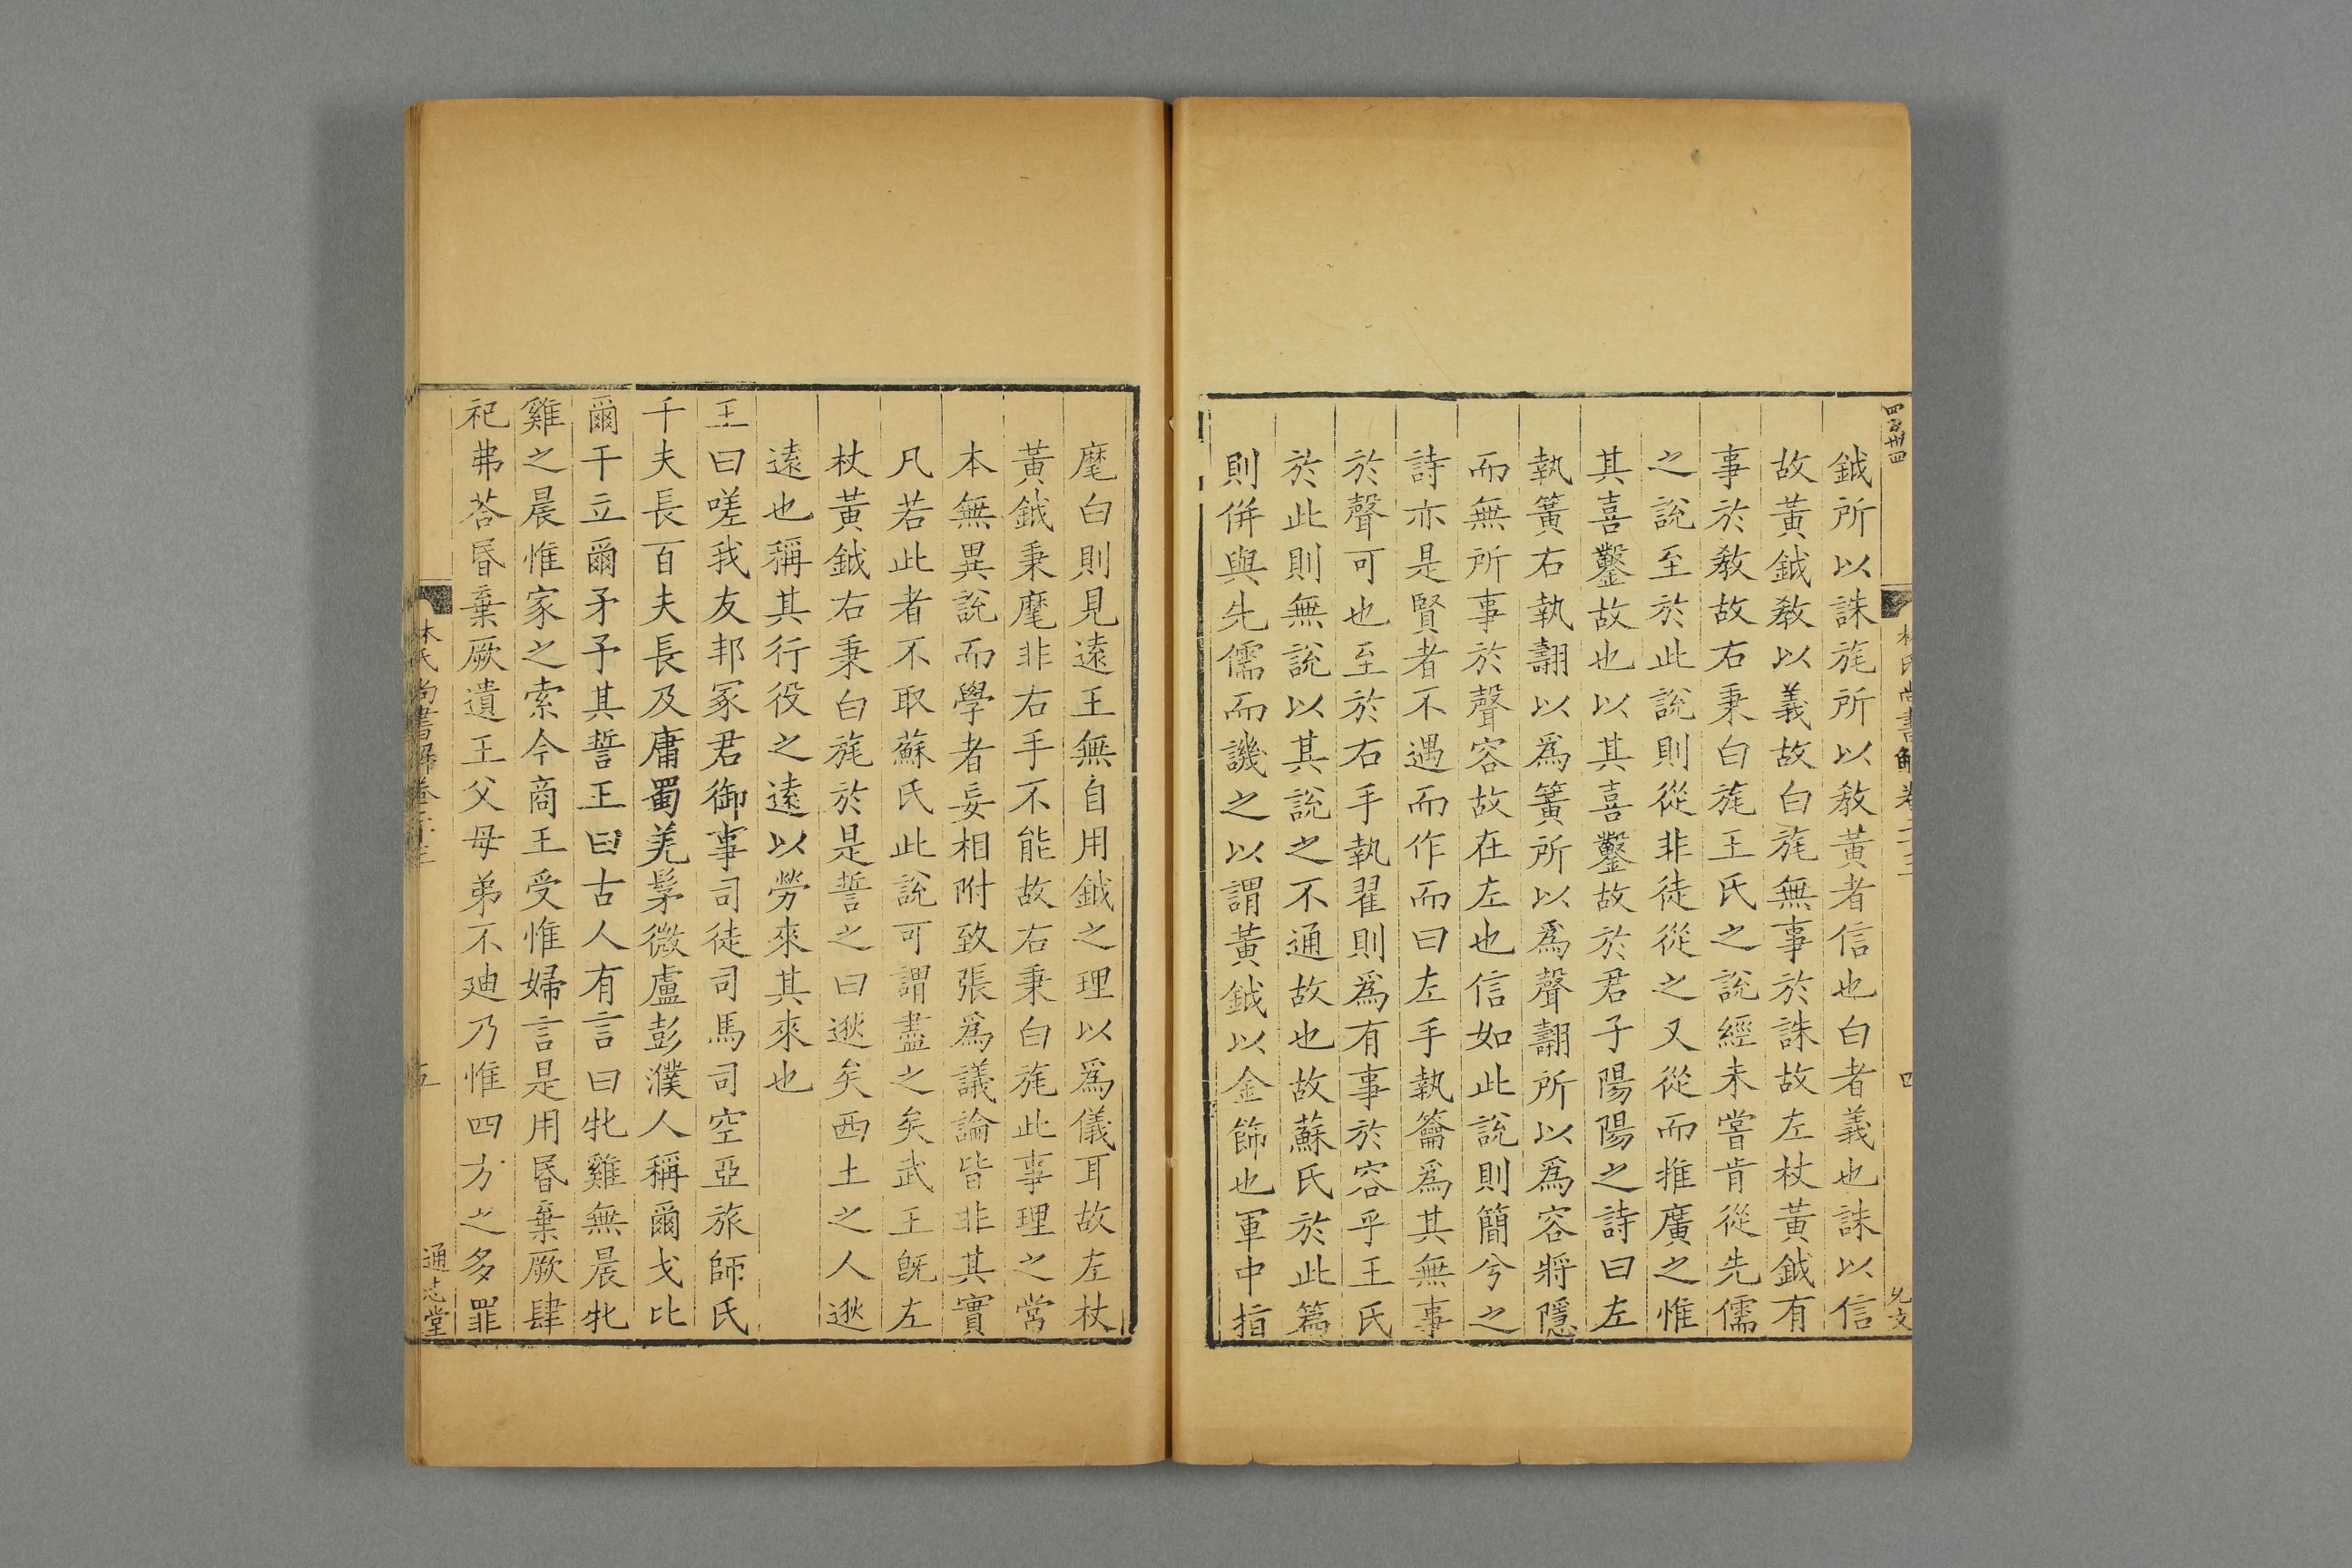 鉞所以誅旄所以敎黃者信也白者義也誅以信
故黃鉞敎以義故白旄無事於誅故左杖黃鉞有
事於敎故右秉白旄王氏之說經未嘗肯從先儒
之說至於此說則從非徒從之又從而推廣之惟
其喜鑿故也以其喜鑿故於君子陽陽之詩曰左
執簧右執翿以爲簧所以爲聲翿所以爲容將隱
而無所事於聲容故在左也信如此說則簡兮之
詩亦是賢者不遇而作而曰左手執籥爲其無事
於聲可也至於右手執翟則爲有事於容乎王氏
於此則無說以其說之不通故也故蘇氏於此篇
則併與先儒而譏之以謂黃鉞以金飾也軍中指
麾白則見遠王無自用鉞之理以爲儀耳故左杖
黃鉞秉麾非右手不能故右秉白旄此事理之常
本無異說而學者妄相附致張爲議論皆非其實
凡若此者不取蘇氏此說可謂盡之矣武王旣左
杖黃鉞右秉白旄於是誓之曰逖矣西土之人逖
遠也稱其行役之遠以勞來其來也
王曰嗟我友邦冢君御事司徒司馬司空亞旅師氏
千夫長百夫長及庸蜀羌髳微盧彭濮人稱爾戈比
爾干立爾矛予其誓王曰古人有言曰牝雞無晨牝
雞之晨惟家之索今商王受惟婦言是用昬棄厥肆
祀弗荅昬棄厥遺王父母弟不迪乃惟四方之多罪
林氏尚書解卷
五
通志堂